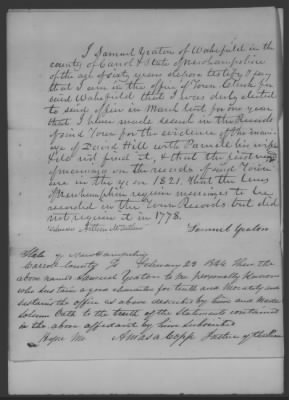 I Samuel Yeaton of Wakefield in the
county of Carroll & State of Newhampshire
of the age of sixty years depose testify & say
that I am in the office of Town Clerk for
said Wakefield that I was duly elected
to said office in March last for one year
that I have made search in the Records
of said Town for the evidence of the marri-
age of David Hill with Pamela his wife
& did not find it, & that the first record
of marriage on the records of said Town
are in the year 1821. That the Laws
of Newhampshire require marriages to be
recorded in the Town Records but did
not require it in 1778.
Samuel Yeaton
State of Newhampshire
Carroll County Ss February 23 1844 Then the
above named Samuel Yeaton to me personally known
who sustain a good character for truth and Morality and
sustains the office as above described by him and made
solemn Oath to the truth of the statements contained
in the above affidavit by him subscribed
Before Me Amasa Copp Justice of the Peace